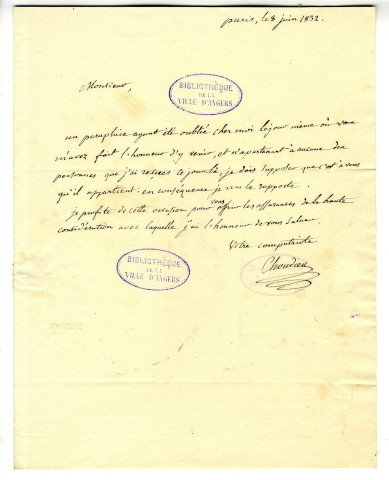 paris, le 8 juin 1832.
Monsieur,
BIBLIOTHÈQUE
DE LA
VILLE D'ANGERS
un parapluie ayant été oublié chez moi le jour meme où vous
m'avez fait l'honneur d'y venir, et n'apartenant à aucune des
personnes que j'ai reçues ce jour là, je dois supposer que c'est à vous
qu'il appartient. en conséquence je vous le rapporte.
je profite de cette occasion pour vous offrir les assurances de la haute
considération avec laquelle j'ai l'honneur de vous saluer.
Votre compatriote
Choudieu
BIBLIOTHÈQUE
DE LA
VILLE D'ANGERS